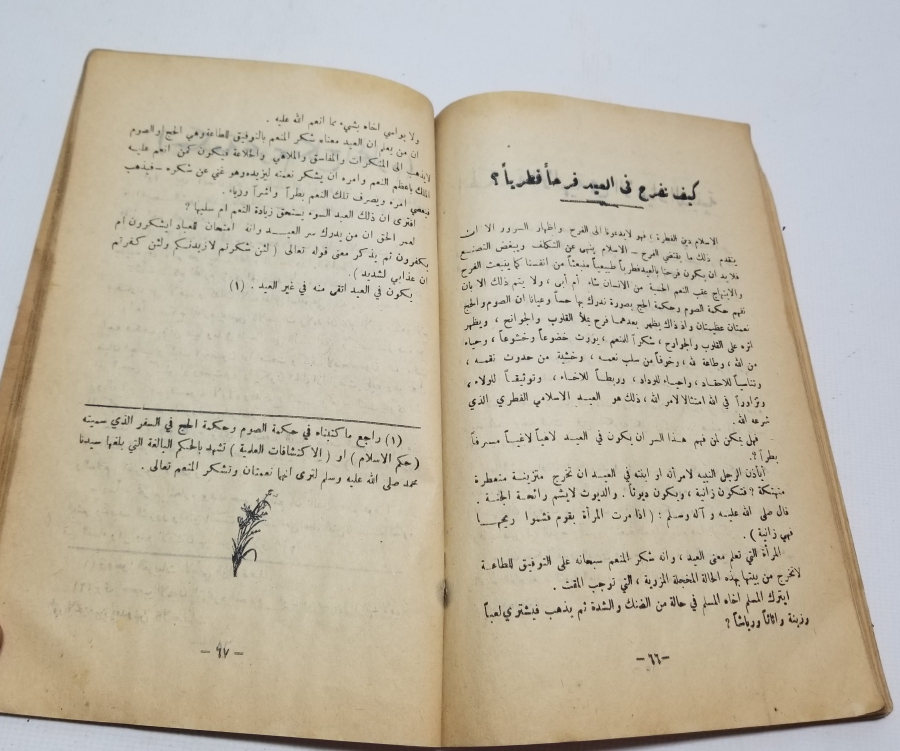 كيف نفرح في العيد فرحاً فطرياً؟
الاسلام دين الفطرة ؛ فهو لايدعونا الى الفرح واظهار السرور الا ان
يتقدم ذلك ما يقتضي الفرح - الاسلام ينهى عن التكلف ويبغض التصنع
فلا بد ان يكون فرحنا بالعيد فطرياً طبيعياً منبعثاً من انفسنا كما ينبعث الفرح
والابتهاج عقب النعم الحسية من الانسان شاء أم أبى ، ولا يتم ذلك الا بان
نفهم حكمة الصوم وحكمة الحج بصورة ندرك بها حساً وعيانا ان الصوم والحج
نعمتان عظيمتان واذ ذاك يظهر بعدهما فرح يملأ القلوب والجوانح ، ويظهر
اثره على القلوب والجوارح ، شكراً للمنعم ، يورث خضوعاً وخشوعاً ، وحياء
من الله ، وطاعة لله ، وخوفاً من سلب نعمه ، وخشية من حدوث نقمه ،
وتناسياً للاحقاد ، واحياء للوداد ، وربطاً للاخاء ، وتوثيقاً للولاء ،
وتزاوراً في الله امتثالا لامر الله ، ذلك هو العيد الاسلامي الفطري الذي
شرعه الله .
فهل يمكن لمن فهم هذا السر ان يكون في العيد لاهياً لاغياً مسرفاً
بطراً ؟.
أيأذن الرجل النبيه لامرأته او ابنته في العيد ان تخرج متزينة متعطرة
متهتكة ؟ فتكون زانية ، ويكون ديوثاً . والديوث لايشم رائحة الجنة .
قال صلى الله عليه و آله وسلم : ( اذا مرت المرأة بقوم فشموا ريحها
فهي زانية ) .
المرأة التي تعلم معنى العيد ، وانه شكر المنعم سبحانه على التوفيق للطاعة
لاتخرج من بيتها بهذه الحالة المخجلة المزرية ، التي توجب المقت .
ايترك المسلم اخاه المسلم في حالة من الضنك والشدة ثم يذهب فيشتري لعباً
وزينة واثاثاً ورياشاً ؟
- ٦٦ -
ولا يواسي اخاه بشيء مما انعم الله عليه .
ان من يعلم ان العيد معناه شكر المنعم بالتوفيق للطاعة وهي الحج والصوم
لايذهب الى المنكرات والمفاسق والملاهي والخلاعة فيكون كمن انعم عليه
الملك باعظم النعم وامره أن يشكر نعمته ليزيده وهو غني عن شكره - فيذهب
يعصي امره ويصرف تلك النعم بطراً واشراً ورياء .
افترى ان ذلك العبد السوء يستحق زيادة النعم ام سلبها ؟
لعمر الحق ان من يدرك سر العيد وانه امتحان للعباد ايشكرون ام
يكفرون ثم يذكر معنى قوله تعالى ( لئن شكرتم لازيدنكم ولئن كفرتم
ان عذابي لشديد ) .
يكون في العيد اتقى منه في غير العيد . (١)
(١) راجع ما كتبناه في حكمة الصوم وحكمة الحج في السفر الذي سميته
( حكم الاسلام ) او ( الاكتشافات العلمية ) تشهد بالحكم البالغة التي بلغها سيدنا
محمد صلى الله عليه وسلم لترى انها نعمتان وتشكر المنعم تعالى .
- ٦٧ -